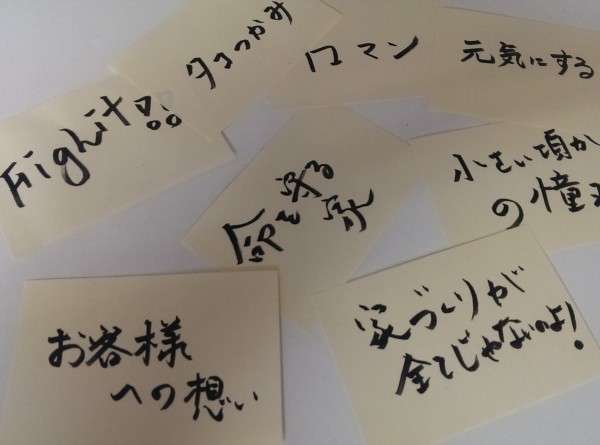 タコつかみ
ロマン
元気にする
Fighit!!
命を守る
家
小さい頃か
の憧
お客様
への想い
家づくりが
全てじゃないのよ!